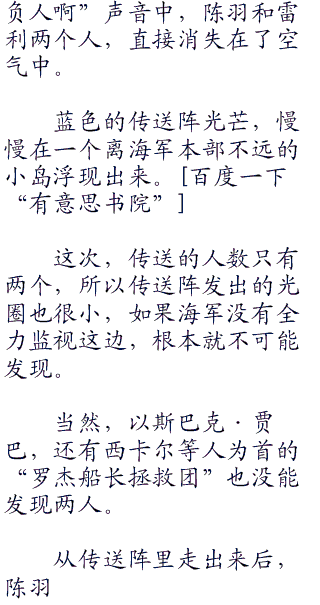 负人啊”声音中，陈羽和雷
利两个人，直接消失在了空
气中。
蓝色的传送阵光芒，慢
慢在一个离海军本部不远的
小岛浮现出来。[百度一下
“有意思书院”]
这次，传送的人数只有
两个，所以传送阵发出的光
圈也很小，如果海军没有全
力监视这边，根本就不可能
发现。
当然，以斯巴克·贾
巴，还有西卡尔等人为首的
“罗杰船长拯救团”也没能
发现两人。
从传送阵里走出来后，
陈羽